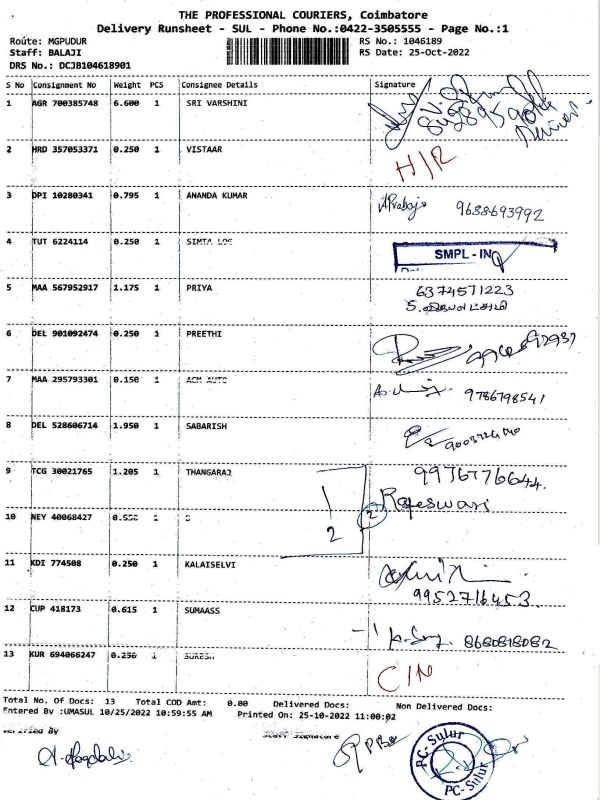 THE PROFESSIONAL COURIERS, Coimbatore
Delivery Runsheet - SUL - Phone No.:0422-3505555 - Page No.:1
Route: MGPUDUR
RS No.: 1046189
Staff: BALAJI
RS Date: 25-Oct-2022
DRS No.: DCJB104618901
S No Consignment No Weight PCS Consignee Details Signature
1 AGR 700385748 6.600 1 SRI VARSHINI
2 HRD 357053371 0.250 1 VISTAAR H/R
3 DPI 10280341 0.795 1 ANANDA KUMAR 9688693992
4 TUT 6224114 0.250 1 SIMTA LOG SMPL - IN
5 MAA 567952917 1.175 1 PRIYA 6374571223
6 DEL 901092474 0.250 1 PREETHI
7 MAA 295793301 0.150 1 ACM AUTO 9786798541
8 DEL 528606714 1.950 1 SABARISH
9 TCG 30021765 1.205 1 THANGARAJ 9976776644.
1 2 2 Rajeswari
10 NEY 40068427 0.550 1
11 KDI 774508 0.250 1 KALAISELVI
9952716453.
12 CUP 418173 0.615 1 SUMAASS 8680818082
13 KUR 694066247 0.250 1 SURESH C/N
Total No. Of Docs: 13 Total COD Amt: 0.00 Delivered Docs: Non Delivered Docs:
Entered By :UMASUL 10/25/2022 10:59:55 AM Printed On: 25-10-2022 11:00:02
Verified By Staff Signature
PC-Sulur
PC-Sulur